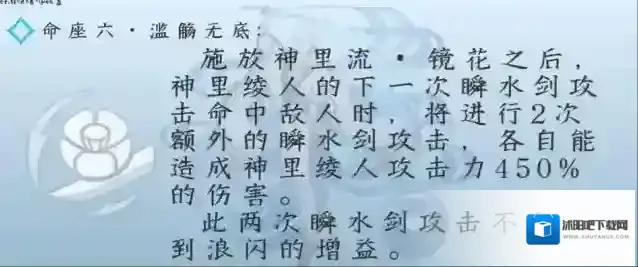 命座六·滥觞无底：
施放神里流·镜花之后，
神里绫人的下一次瞬水剑攻
击命中敌人时，将进行2次
额外的瞬水剑攻击，各自能
造成神里绫人攻击力450%
的伤害。
此两次瞬水剑攻击不
到浪闪的增益。
沭阳吧下载网
WWW.SHUYANG8.COM